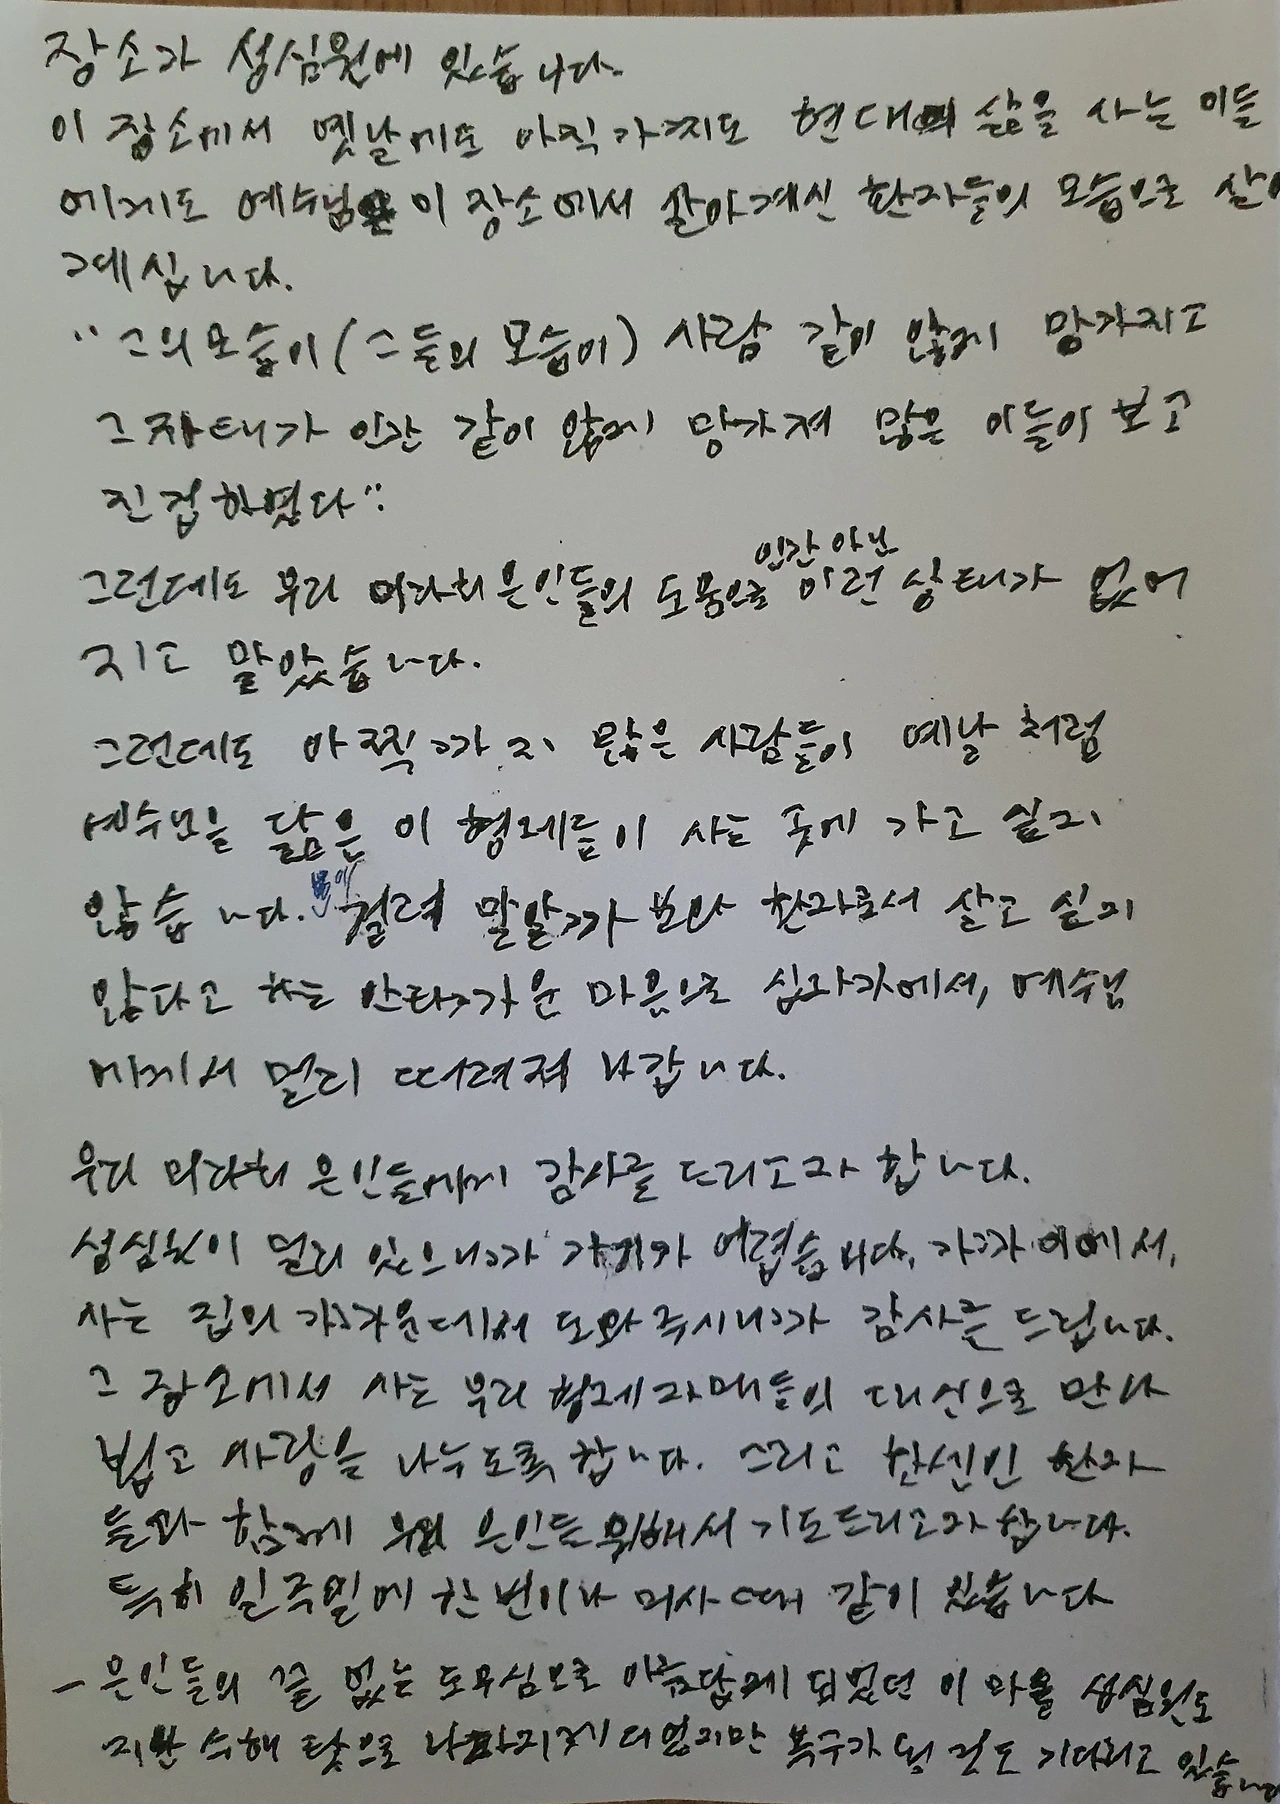 장소가 성심원에 있습니다.
이 장소에서 옛날에도 아직까지도 현대의 삶을 사는 이들
에게도 예수님은 이 장소에서 살아계신 환자들의 모습으로 살아
계십니다.
"그의 모습이(그들의 모습이) 사람 같이 않게 망가지고
그 자태가 인간 같이 않게 망가져 많은 이들이 보고
진겁하였다":
인간 아닌
그런데도 우리 미라회 은인들의 도움으로 이런 상태가 없어
지고 말았습니다.
그런데도 아찍까지 많은 사람들이 예날 처럼
예수님을 닮은 이 형제들이 사는 곳에 가고 싶지
않습니다. 걸려 말알까 보아 환자로서 살고 싶지
않다고 하는 안타까운 마음으로 십자가에서, 예수님
에게서 멀리 떠러져 나갑니다.
우리 미라회 은인들에게 감사를 드리고자 합니다.
성심원이 멀리 있으니까 가기가 어렵습니다. 가까이에서,
사는 집의 가까운데에서 도와주시니까 감사를 드립니다.
그 장소에서 사는 우리 형제 자매들의 대신으로 만나
뵙고 사랑을 나누도록 합니다. 그리고 한센인 환자
들과 함께 우리 은인들 위해서 기도드리고자 합니다.
특히 일주일에 한 번이나 미사 때 같이 있습니다
- 은인들의 끝 없는 도우심으로 아름답게 되었던 이 마을 성심원도
지난 수해 탓으로 나빠지게 되었지만 복구가 될 것도 기다리고 있습니다